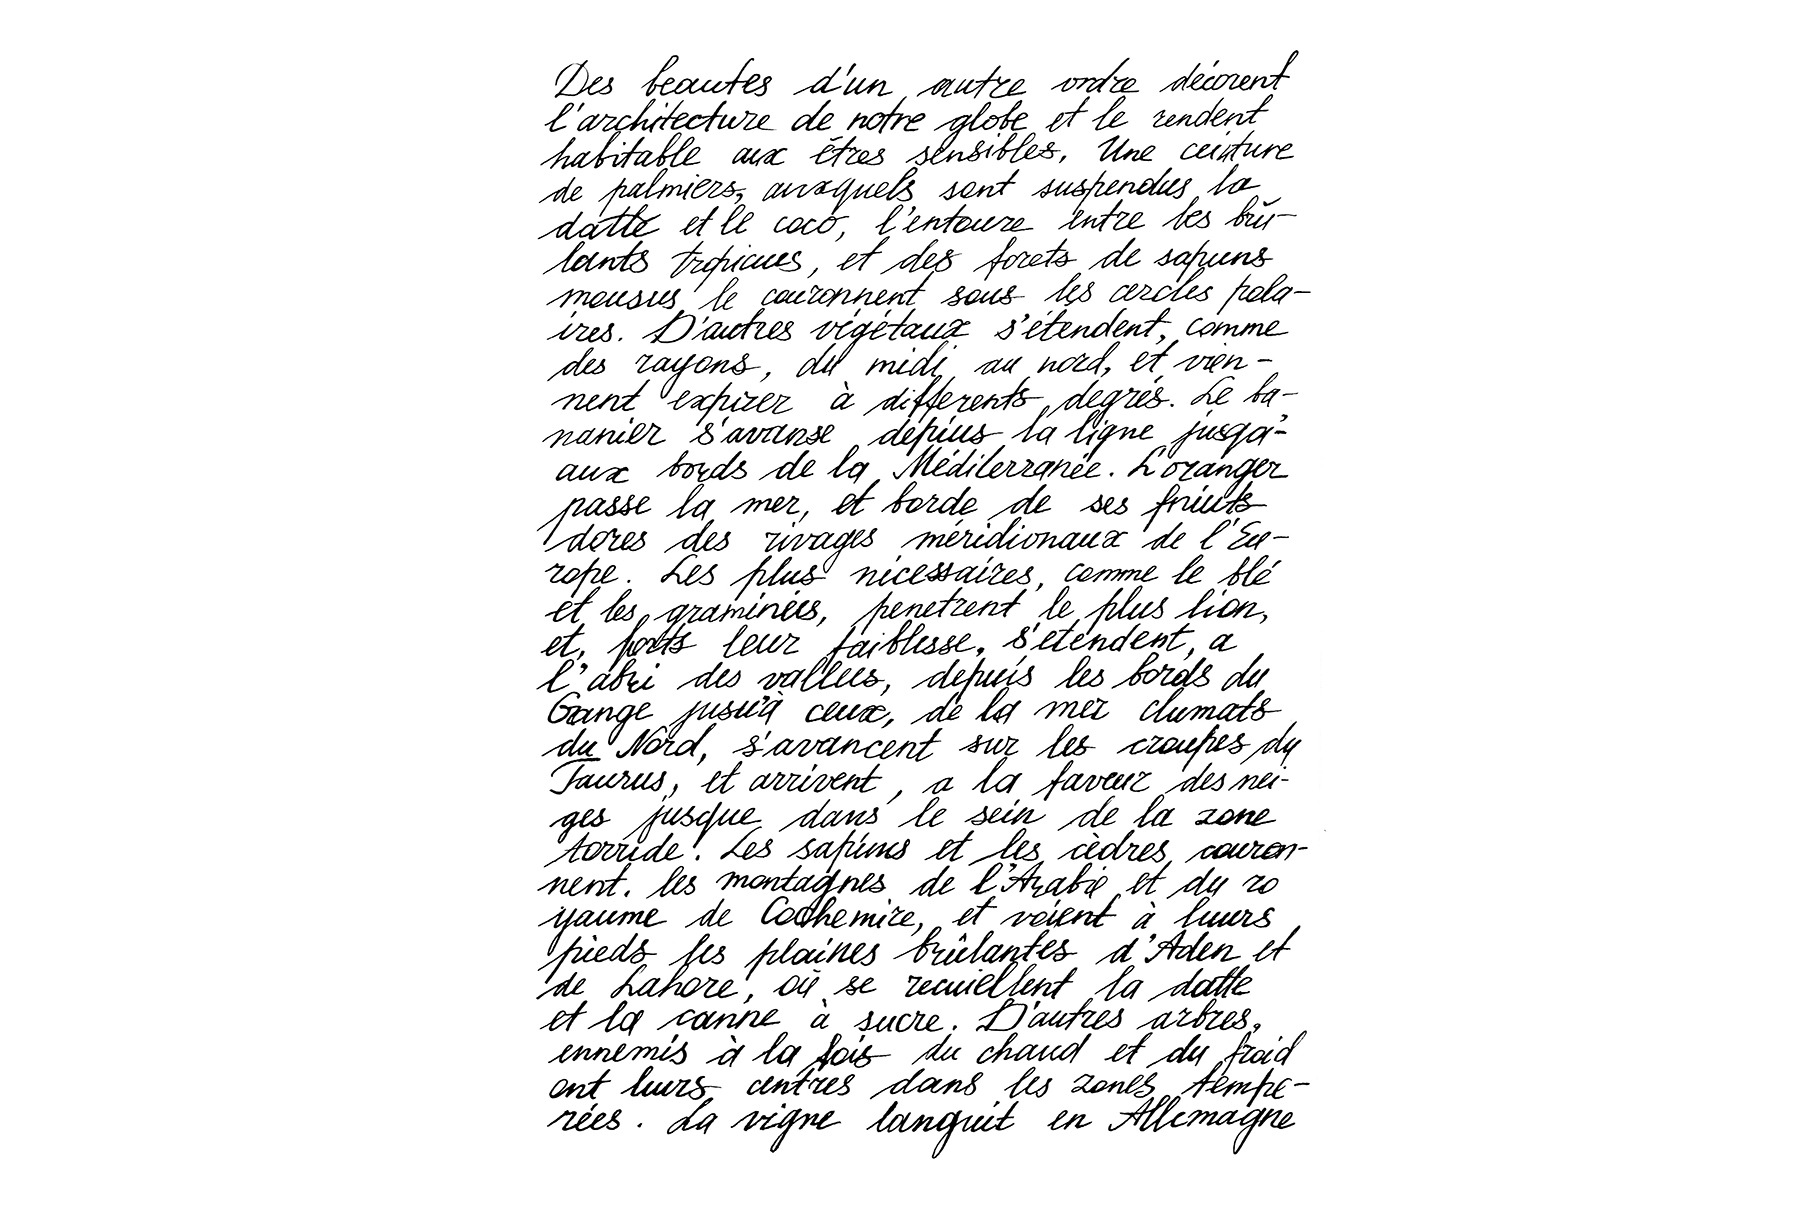 Des beautes d'un autre ordre décorent
l'architecture de notre globe et le rendent
habitable aux êtres sensibles. Une ceinture
de palmiers, auxquels sont suspendus la
datte et le coco, l'entoure entre les brû-
lants tropicues, et des forets de sapuns
mousus le couronnent sous les cercles pola-
ires. D'autres végétaux s'étendent, comme
des rayons, du midi au nord, et vien-
nent expirer à differents degrés. Le ba-
nanier s'avanse depius la ligne jusqà'-
aux bords de la Méditerranée. L'oranger
passe la mer, et borde de ses friuts
dores des rivages méridionaux de l'Eu-
rope. Les plus nécessaires, comme le blé
et les graminées, penetrent le plus lion,
et, forts leur faiblesse, s'etendent, a
l'abri des vallees, depuis les bords du
Gange jusu'à ceux, de la mer clumats
du Nord, s'avancent sur les croupes du
Taurus, et arrivent, a la faveur des nei-
ges jusque dans le sein de la zone
torride. Les sapins et les cèdres couron-
nent. les montagnes de l'Arabie et du ro
yaume de Cachemire, et voient à luurs
pieds les plaines brûlantes d'Aden et
de Lahore, où se recuiellent la datte
et la canne à sucre. D'autres arbres,
ennemis à la fois du chaud et du froid
ont luurs centres dans les zones tempe-
rées. La vigne languit en Allemagne